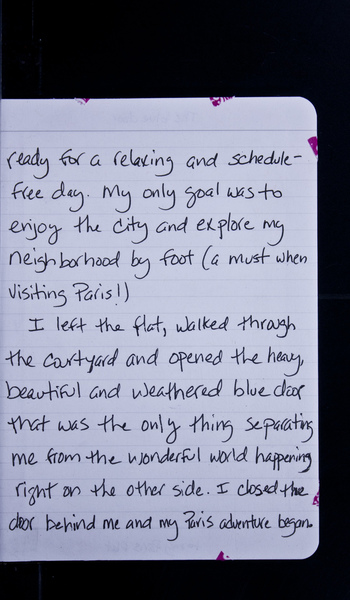 ready for a relaxing and schedule-
free day. My only goal was to
enjoy the city and explore my
neighborhood by foot (a must when
visiting Paris!)
I left the flat, walked through
the courtyard and opened the heavy,
beautiful and weathered blue door
that was the only thing separating
me from the wonderful world happening
right on the other side. I closed the
door behind me and my Paris adventure began.